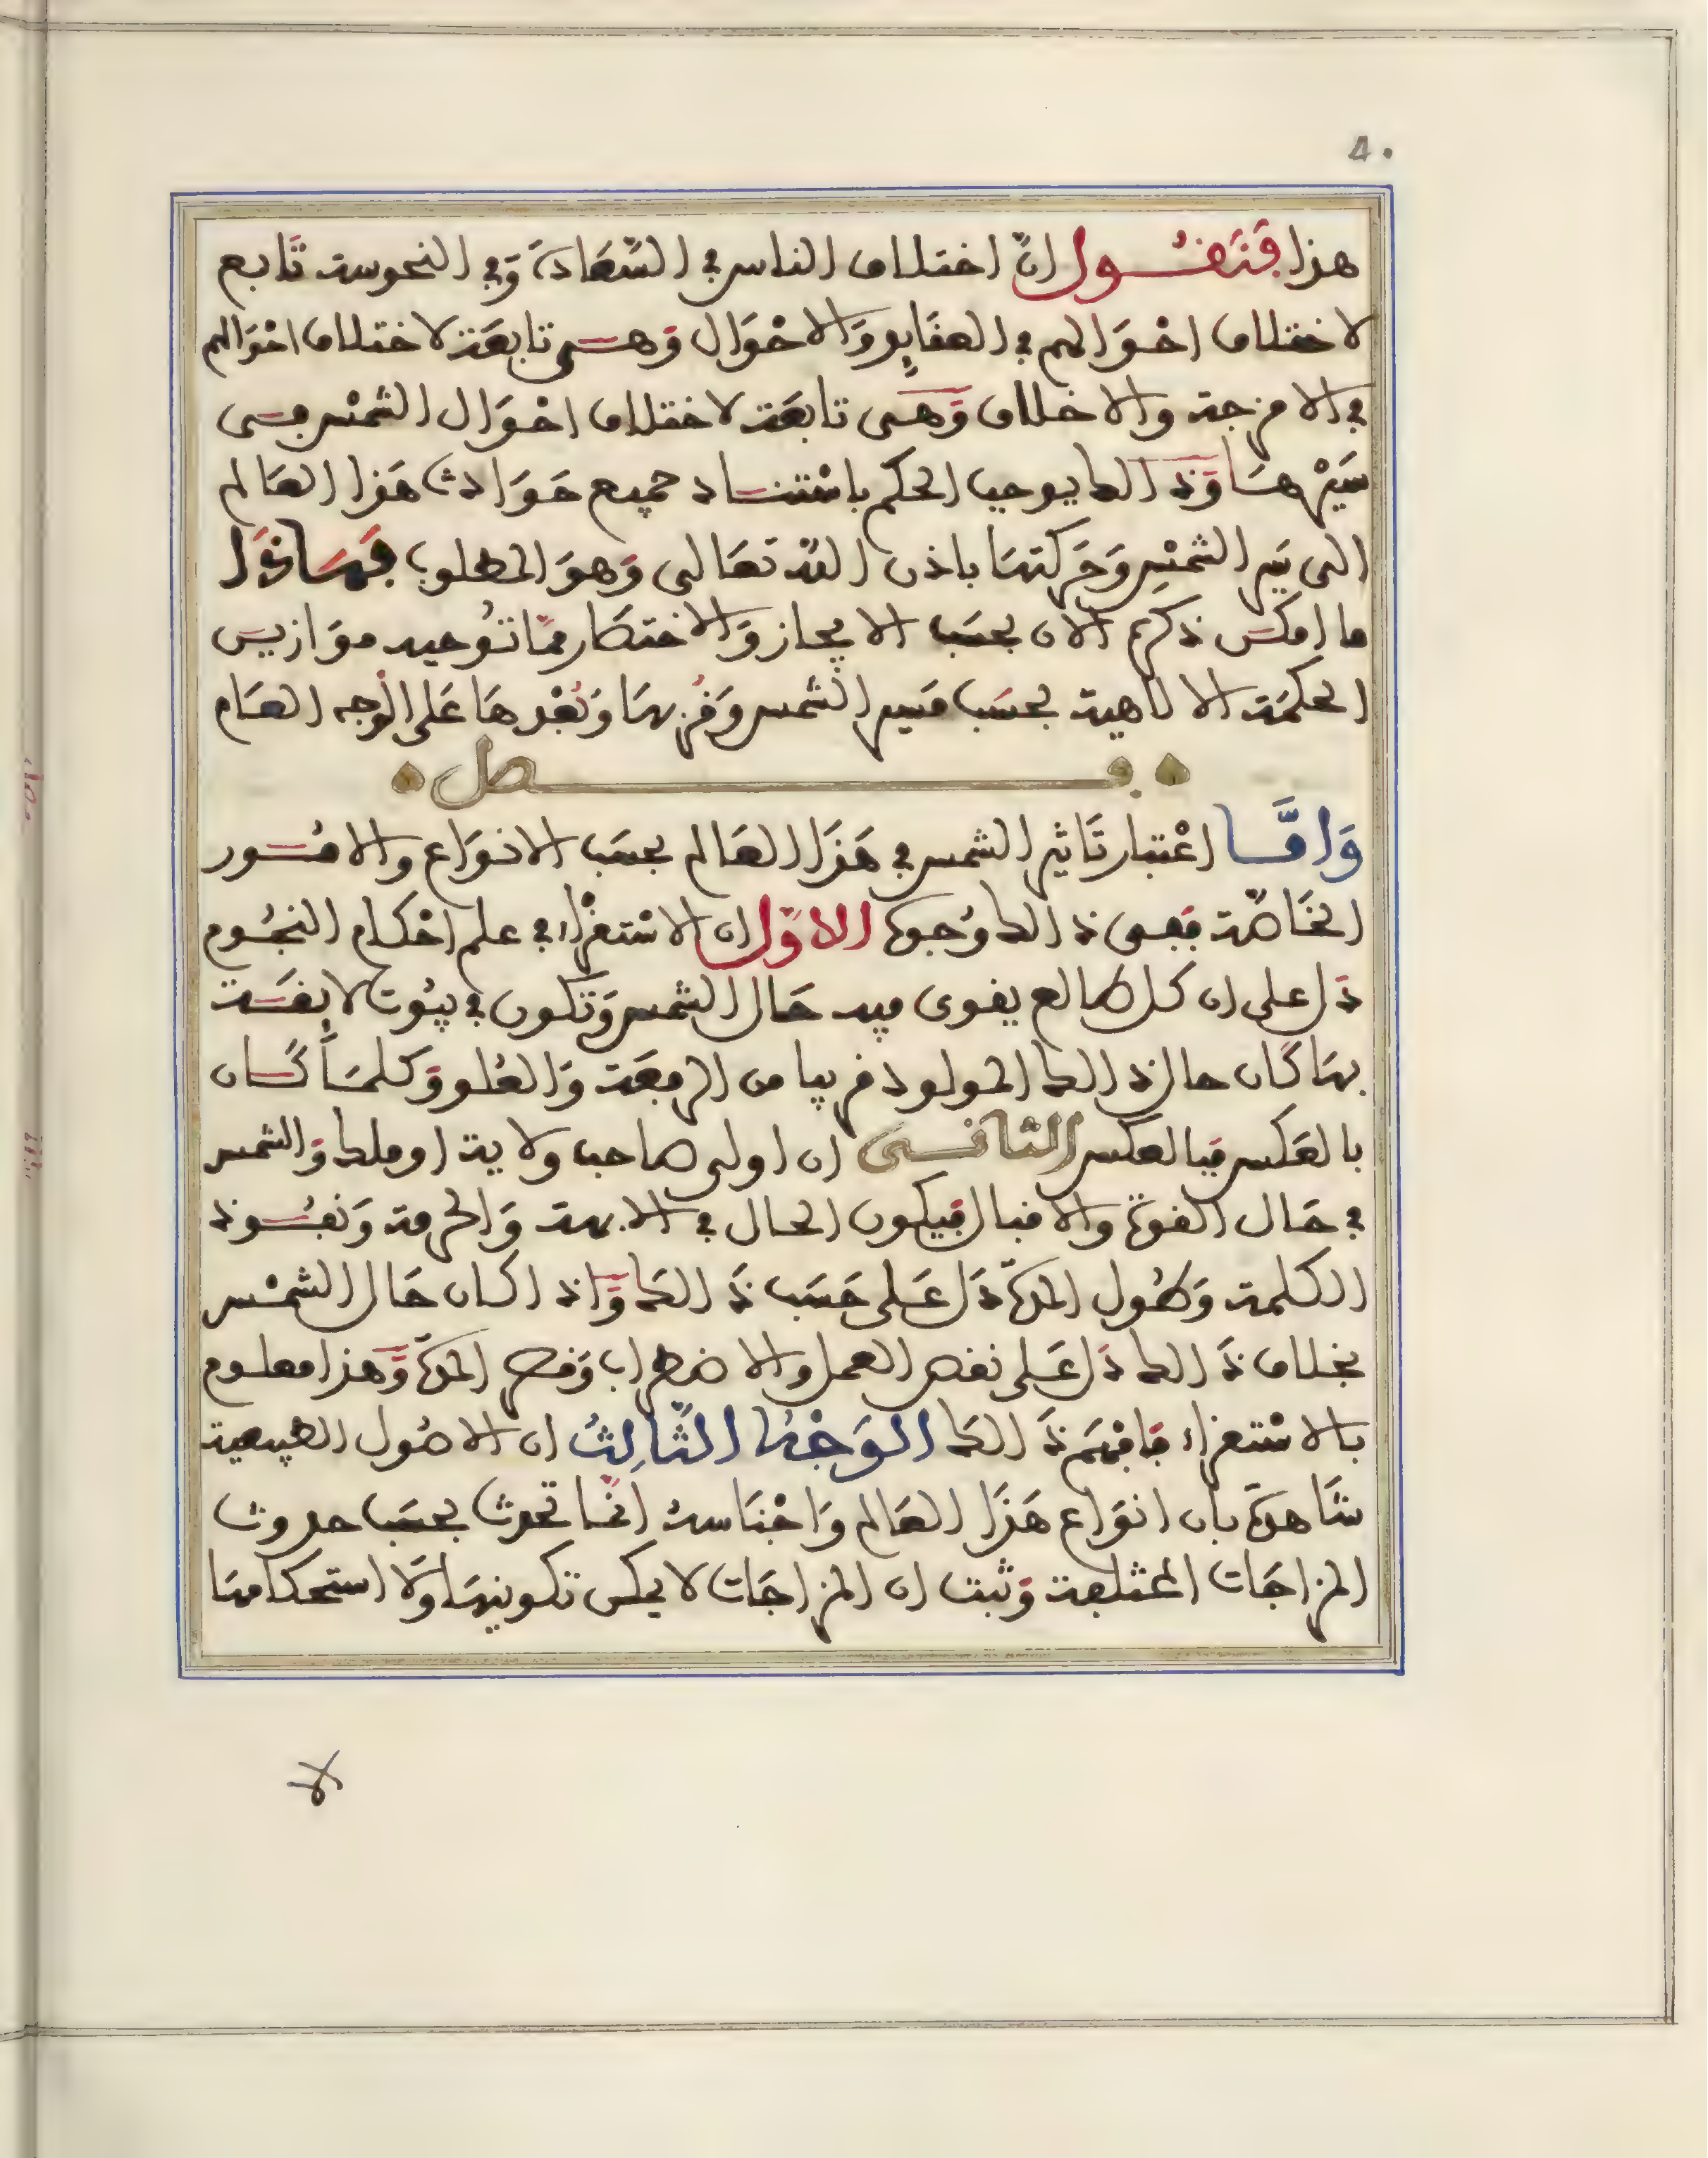 ٤٠
هذا فنقــول ان اختلاف الناس في السعادة وفي النحوسة تابع
لاختلاف احوالهم في العقايد والاحوال وهي تابعة لاختلاف احوالهم
في الامزجة والاخلاق وهي تابعة لاختلاف احوال الشمس في
سيرها وذالك يوجب الحكم باستناد جميع حوادث هذا العالم
الى نير الشمس وحركتها باذن الله تعالى وهو المطلوب فهاذا
ما امكن ذكره الان بحسب الايجاز والاختصار مما توجبه موازين
الحكمة الالاهية بحسب مسير الشمس وقربها وبعدها على الوجه العام
فصل
واما اعتبار تاثير الشمس في هذا العالم بحسب الانواع والامور
الخاصة ففي ذالك وجوه الاول ان الاستقراء في علم احكام النجوم
دل على ان كل طالع يقوى فيه حال الشمس وتكون في بيوت لايقة
بها كان حال ذالك المولود قريبا من الرفعة والعلو وكلما كان
بالعكس فبالعكس الثاني ان اولى صاحب ولاية او ملك والشمس
في حال القوة والاقبال فيكون الحال في الابهة والحرمة ونفوذ
الكلمة وطول المدة دل على حسب ذالك واذا كان حال الشمس
بخلاف ذالك دل على نقص العمل والاضطراب وقصر المدة وهذا معلوم
بالاستقراء فافهم ذالك الوجه الثالث ان الاصول الطبيعية
شاهدة بان انواع هذا العالم واجناسه انما تحدث بحسب حدوث
المزاجات المختلفة وثبت ان المزاجات لا يمكن تكوينها ولا استحكامها
لا